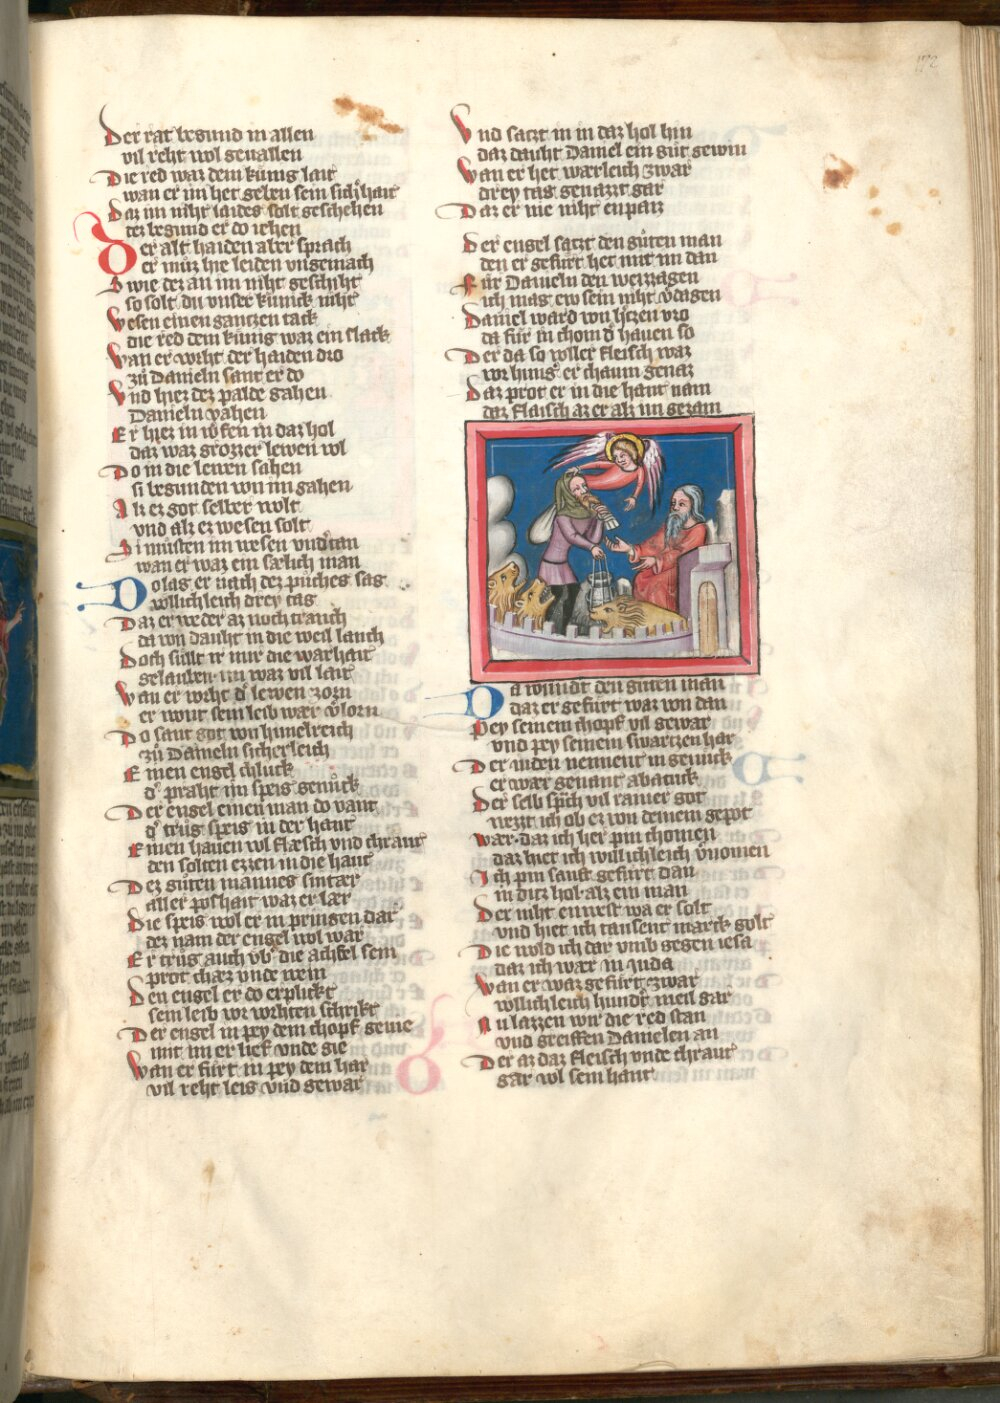 Der rat begund in allen
vil reht wol geuallen
Die red waz dem kunig lait
wan er im het geben sein sicherhait
Daz im niht laides solt geschehen
dez begund er do iehen
Der alt haiden aber sprach
er muz hie leiden vngemach
Swie dez an im niht geschiht
so solt du vnser kunick niht
Wesen einen gantzen tack
die red dem kunig waz ein slack
Wan er vorht der haiden dro
zu Danieln sant er do
Vnd hiez dez palde gahen
Danieln vahen
Er hiez in werfen in daz hol
daz waz grozzer lewen vol
Do in die lewen sahen
si begunden von im gahen
Alz ez got selber wolt
vnd alz ez wesen solt
Si musten im wesen vndertan
wan er waz ein sælich man
Do lag er nach dez puches sag
vollichleich drey tag
Daz er weder az noch tranch
da von dauht in die weil lanch
Doch sullt ir mir die warhait
gelauben im waz vil lait
Wan er vorht der lewen zorn
er wont sein leib wær verlorn
Do sant got von himelreich
zu Danieln sicherleich
Einen engel chluck
der praht im speis genuck
Der engel einen man do vant
der trug speis in der hant
Einen hauen vol flæsch vnd chraut
den solten ezzen in die haut
Dez guten mannes sintær
aller poshait waz er lær
Die speis wol er in pringen dar
dez nam der engel wol war
Er trug auch vber die achsel sein
prot chæz vnde wein
Den engel er do erplickt
sein leib vor vorhten schrikt
Der engel in pey dem chopf geuie
mit im er lief vnde gie
Wan er furt in pey dem har
vil reht leis vnd gewar
Vnd satzt in in daz hol hin
daz dauht Daniel ein gut gewin
Wan er het warleich zwar
drey tag genazzt gar
Daz er nie niht enpaiz
Der engel satzt den guten man
den er gefurt het mit im dan
Fur Danieln den weizzagen
ich mag ew sein niht verdagen
Daniel ward von hertzen vro
da fur in chom der hauen so
Der da so voller fleisch waz
vor hunger er chaum genaz
Daz prot er in die hant nam
daz flaisch az er alz im gezam
Da wundt den guten man
daz er gefurt waz von dan
Pey seinem chopf vil gewar
vnd pey seinem swartzen har
Der iuden nennent in genuck
er waz genant abacuck
Der selb sprach vil rainer got
west ich ob ez von deinem gepot
Wær daz ich her pin chomen
daz hiet ich willichleich vernomen
Ich pin sanft gefurt dan
in ditz hol alz ein man
Der niht enwest wa er solt
vnd hiet ich tausent marck golt
Die wold ich dar vmb gegen iesa
daz ich wær in iuda
Wan er waz gefurt zwar
vollichleich hundert meil gar
Nu lazzen wir die red stan
vnd greiffen Danielen an
Der az daz fleisch vnde chraut
gar vol sein haut